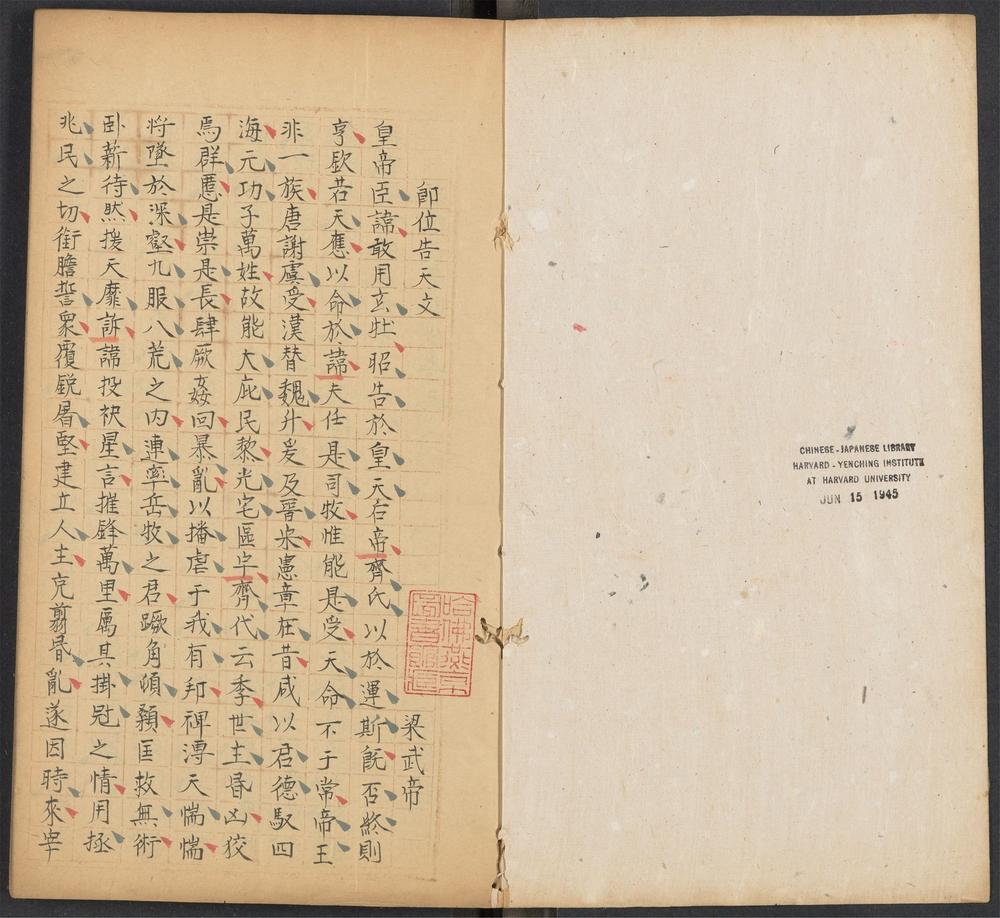 即位告天文
梁武帝
皇帝臣諱敢用玄牡昭告於皇天后帝齊氏以於運斯旣否終則
亨欽若天應以命於諱夫任是司牧惟能是受天命不于常帝王
非一族唐謝虞受漢替魏升爰及晉宋憲章在昔咸以君德馭四
海元功子萬姓故能大庇民黎光宅區宇齊代云季世主昏凶狡
焉群慝是崇是長肆厥姦回暴亂以播虐于我有邦俾溥天惴惴
將墜於深壑九服八荒之內連率岳牧之君蹶角頃顙匡救無術
臥薪待然援天靡訴諱投袂星言摧鋒萬里厲其掛冠之情用拯
兆民之切銜膽誓衆覆銳屠堅建立人主克翦昬亂遂因時來宰
哈佛燕京
圖書館
CHINESE-JAPANESE LIBRARY
HARVARD-YENCHING INSTITUTE
AT HARVARD UNIVERSITY
JUN 15 1945